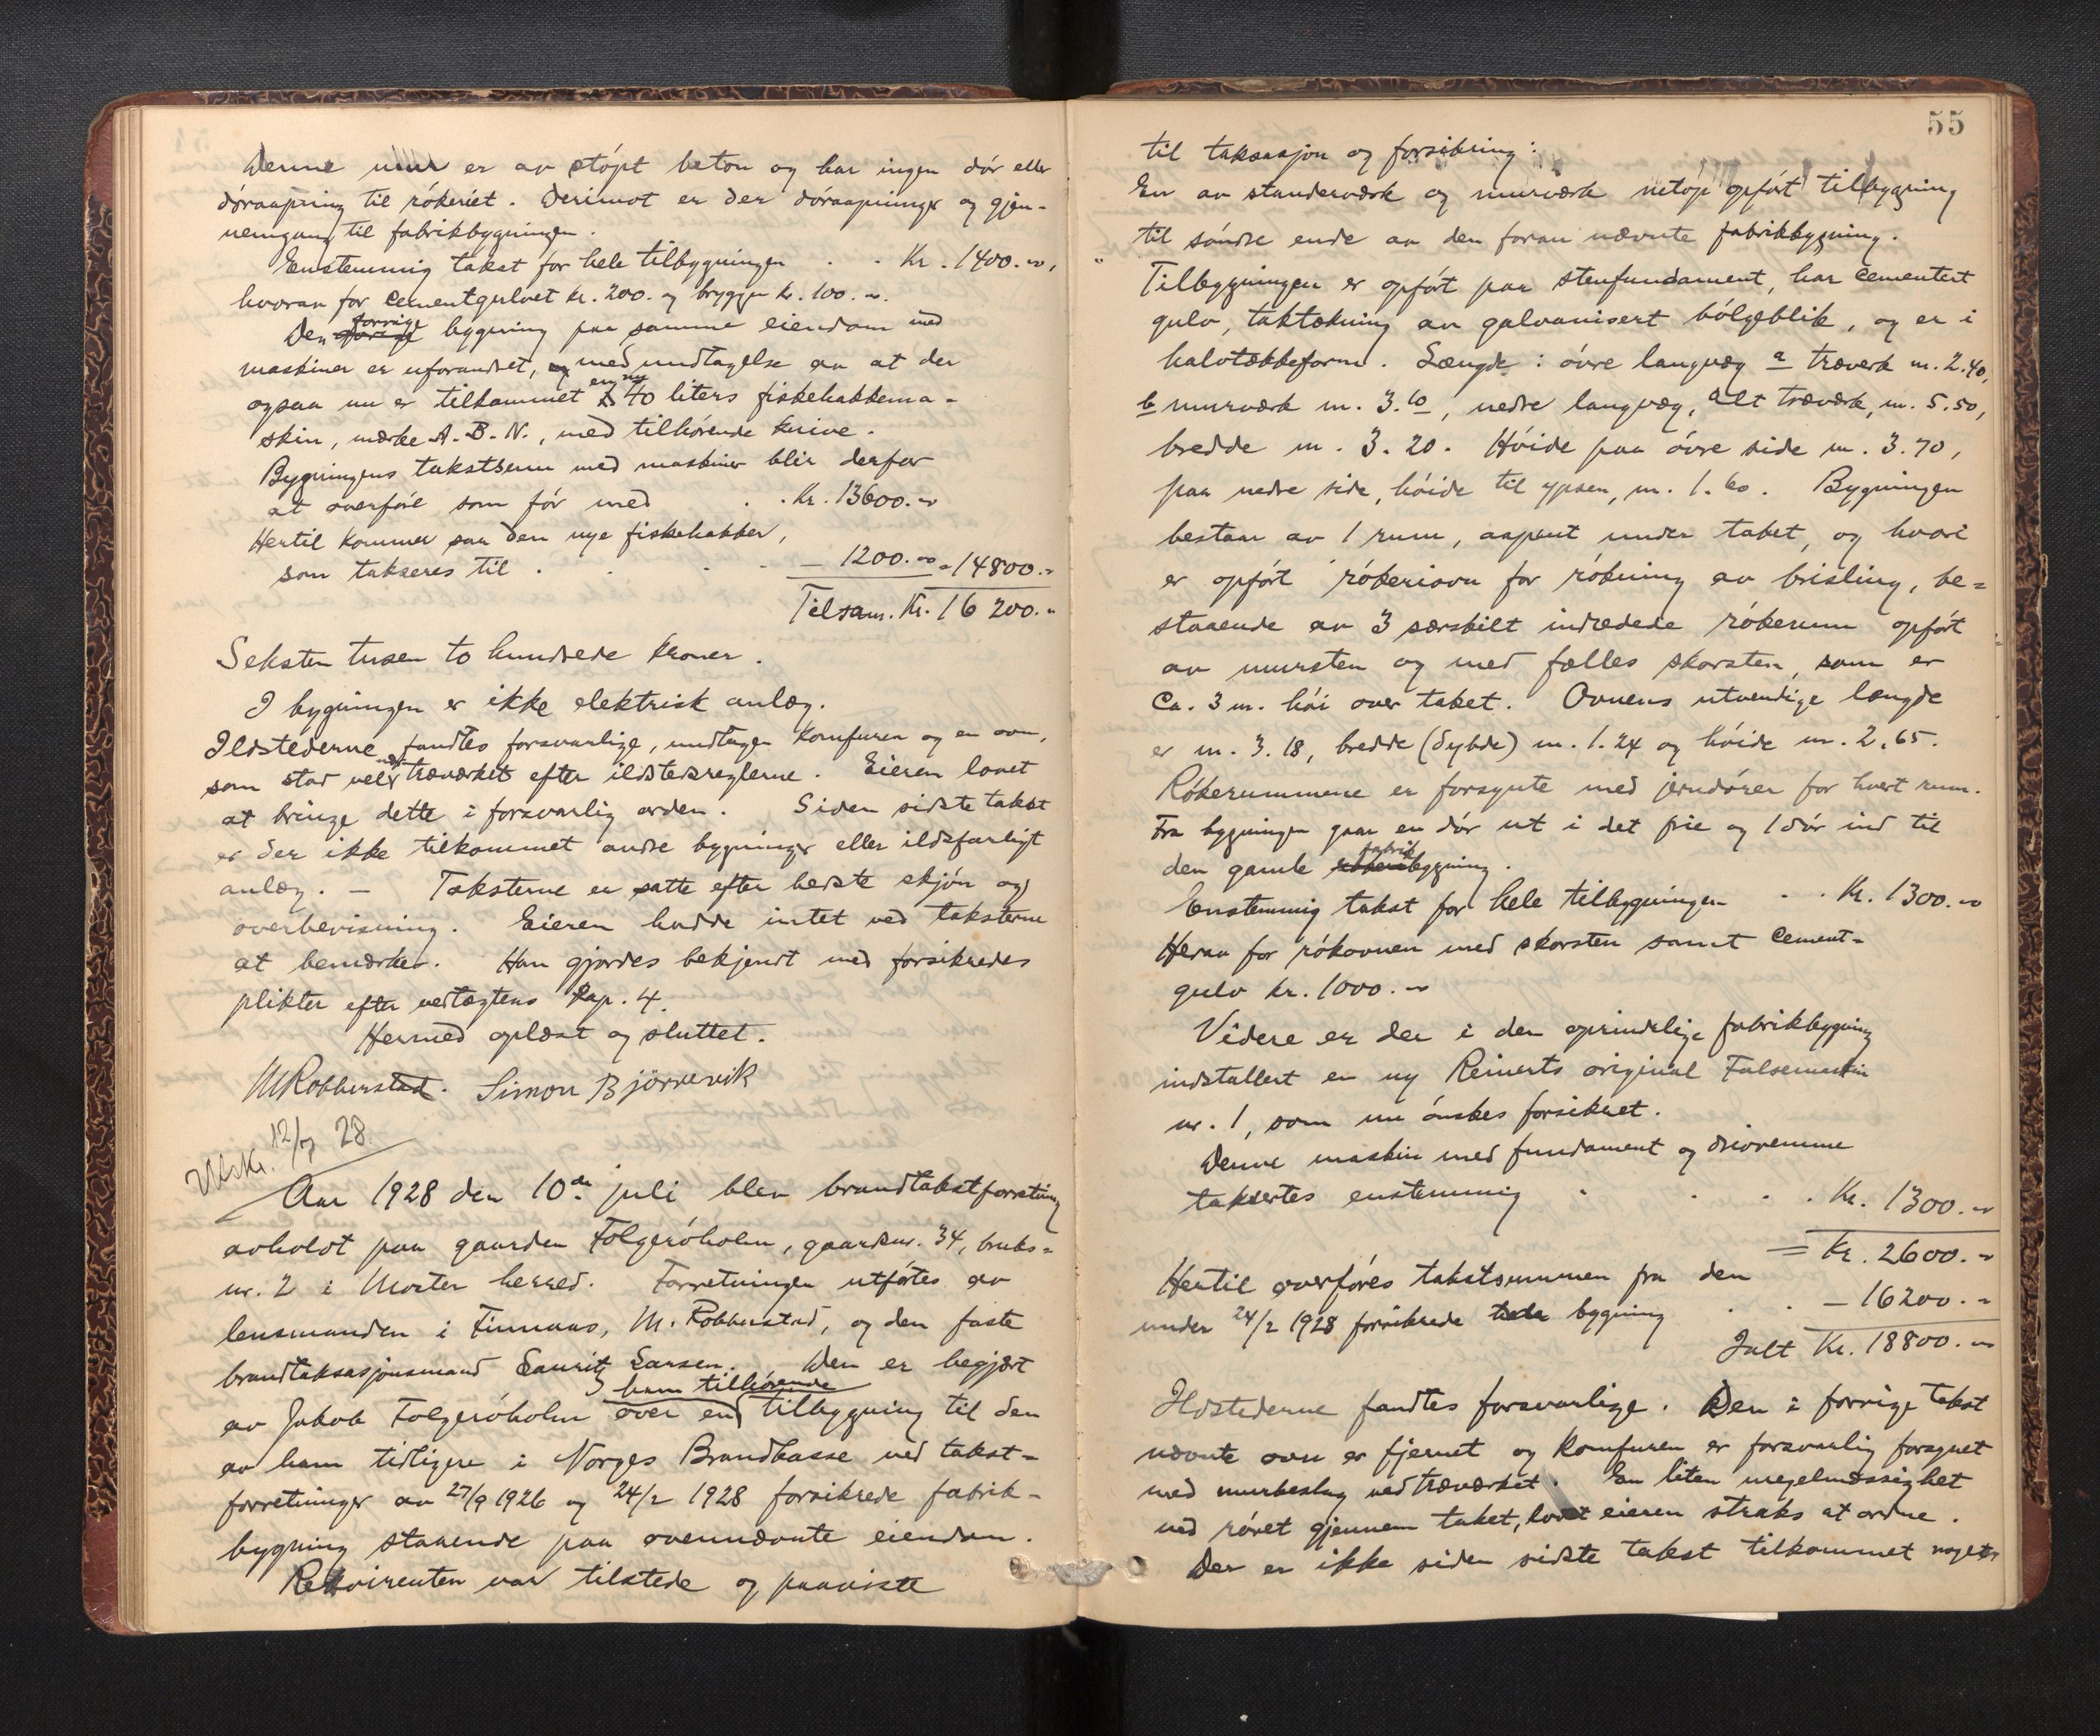 Denne mur er av støpt beton og har ingen dør eller
døraapning til røkeriet. Derimot er der døraapninger og gjen-
nemgang til fabrikbygningen.
Enstemmig takst for hele tilbygningen . . Kr. 1400.-,
hvorav for cementgulvet kr. 200. og bryggen kr. 100.-.
Den forrige bygning paa samme eiendom med
maskiner er uforandret, med undtagelse av at der
ogsaa nu er tilkommet en ny 40 liters fiskehakkema-
skin, mærke A.B.N., med tilhørende knive.
Bygningens takstsum med maskiner blir derfor
at overføre som før med . . Kr. 13600.-
Hertil kommer saa den nye fiskehakker,
som takseres til . . . . - 1200.- = 14800.-
Tilsam. Kr. 16200.-
Seksten tusen to hundrede kroner.
I bygningen er ikke elektrisk anlæg.
Ildstederne fandtes forsvarlige, undtagen komfuren og en ovn,
som stod ved træværket efter ildstedsreglerne. Eieren lovet
at bringe dette i forsvarlig orden. Siden sidste takst
er der ikke tilkommet andre bygninger eller ildsfarligt
anlæg. - Taksterne er satte efter bedste skjøn og
overbevisning. Eieren hadde intet ved taksterne
at bemærke. Han gjordes bekjendt med forsikredes
plikter efter vedtægtens kap. 4.
Hermed oplæst og sluttet.
M Robberstad. Simon Bjørnevik
Utskr. 12/7 28.
Aar 1928 den 10de juli blev brandtakstforretning
avholdt paa gaarden Folgerøholm, gaardsnr. 34, bruks-
nr. 2 i Moster herred. Forretningen utførtes av
lensmanden i Finnaas, M. Robberstad, og den faste
brandtaksasjonsmand Lauritz Larsen. Den er begjært
ham tilhørende
av Jakob Folgerøholm over en tilbygning til den
av ham tidligere i Norges Brandkasse ved takst-
forretninger av 27/9 1926 og 24/2 1928 forsikrede fabrik-
bygning staaende paa ovennævnte eiendom.
Rekvirenten var tilstede og paaviste
55
til taksasjon og forsikring:
En av standerværk og murværk netop opført tilbygning
til søndre ende av den foran nævnte fabrikbygning.
Tilbygningen er opført paa stenfundament, har cementert
gulv, taktækning av galvanisert bølgeblik, og er i
halvtækkeform. Længde: øvre langvæg a træverk m. 2.40,
b murværk m. 3.10, nedre langvæg, alt træværk, m. 5.50,
bredde m. 3.20. Høide paa øvre side m. 3.70,
paa nedre side, høide til gesim, m. 1.60. Bygningen
bestaar av 1 rum, aapent under taket, og hvori
er opført røkeriovn for røkning av brisling, be-
staaende av 3 særskilt indredede røkerum opført
av mursten og med fælles skorsten, som er
ca. 3 m. høi over taket. Ovnens utvendige længde
er m. 3.18, bredde (dybde) m. 1.24 og høide m. 2,65.
Røkerummene er forsynte med jerndører for hvert rum.
Fra bygningen gaar en dør ut i det frie og 1 dør ind til
den gamle fabrikbygning.
Enstemmig takst for hele tilbygningen . . Kr. 1300.-
Herav for røkovnen med skorsten samt cement-
gulv kr. 1000.-
Videre er der i den oprindelige fabrikbygning
indstallert en ny Reinerts original Falsemaskin
nr. 1, som nu ønskes forsikret.
Denne maskin med fundament og drivremme
taksertes enstemmig . . . . Kr. 1300.-
= Kr. 2600.-
Hertil overføres takstsummen fra den
under 24/2 1928 forsikrede bygning . . - 16200.-
Ialt Kr. 18800.-
Ildstederne fandtes forsvarlige. Den i forrige takst
nævnte ovn er fjernet og komfuren er forsvarlig forsynet
med murbeslag ved træværket. En liten uregelmæssighet
ved røret gjennem taket, lovet eieren straks at ordne.
Der er ikke siden sidste takst tilkommet noget